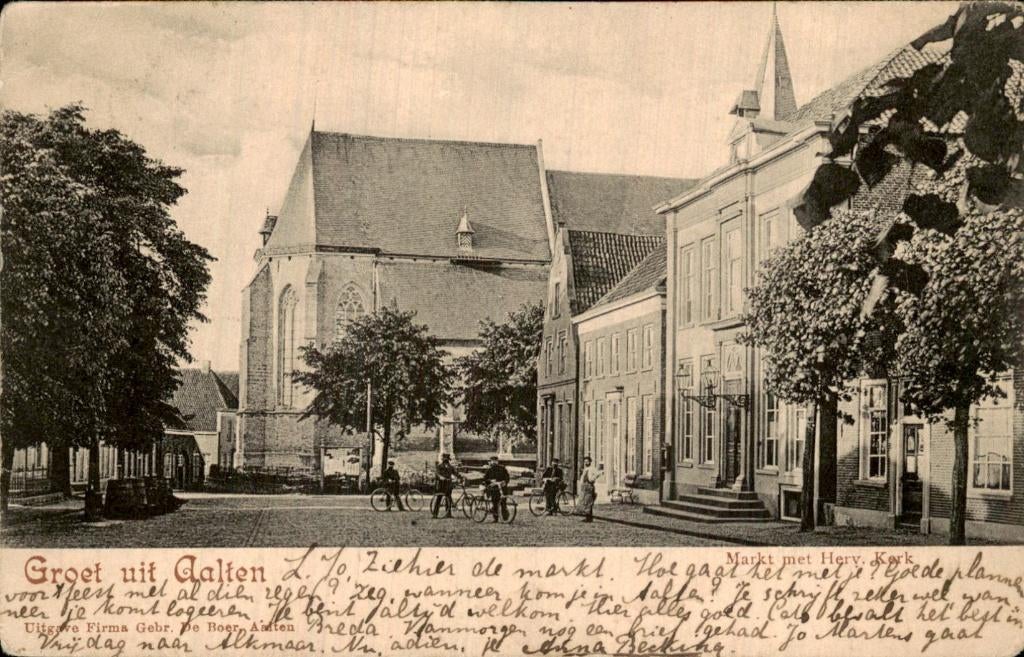 Groet uit Aalten
Markt met Herv. Kerk
Uitgave Firma Gebr. De Boer, Aalten
L. Jo, Ziehier de markt. Hoe gaat het met je? Goede plannen
voor 't feest met al dien regen? Zeg, wanneer kom je in Aalten? Je schrijft zeker wel wan-
neer je komt logeeren. Je bent altijd welkom. Hier alles goed. Cato bevalt het best in
Breda. Vanmorgen nog een brief gehad. Jo Martens gaat
Vrijdag naar Alkmaar. Nu, adieu, je Anna Becking.